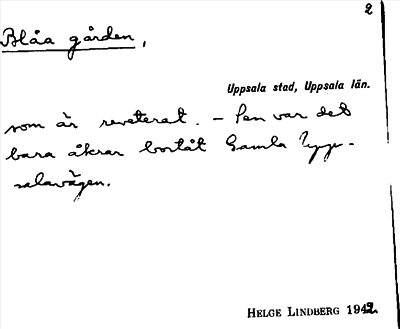 2
Blåa gården,
Uppsala stad, Uppsala län.
som är reveterat. – Sen var det
bara åkrar bortåt Gamla Upp-
salavägen.
HELGE LINDBERG 1942.